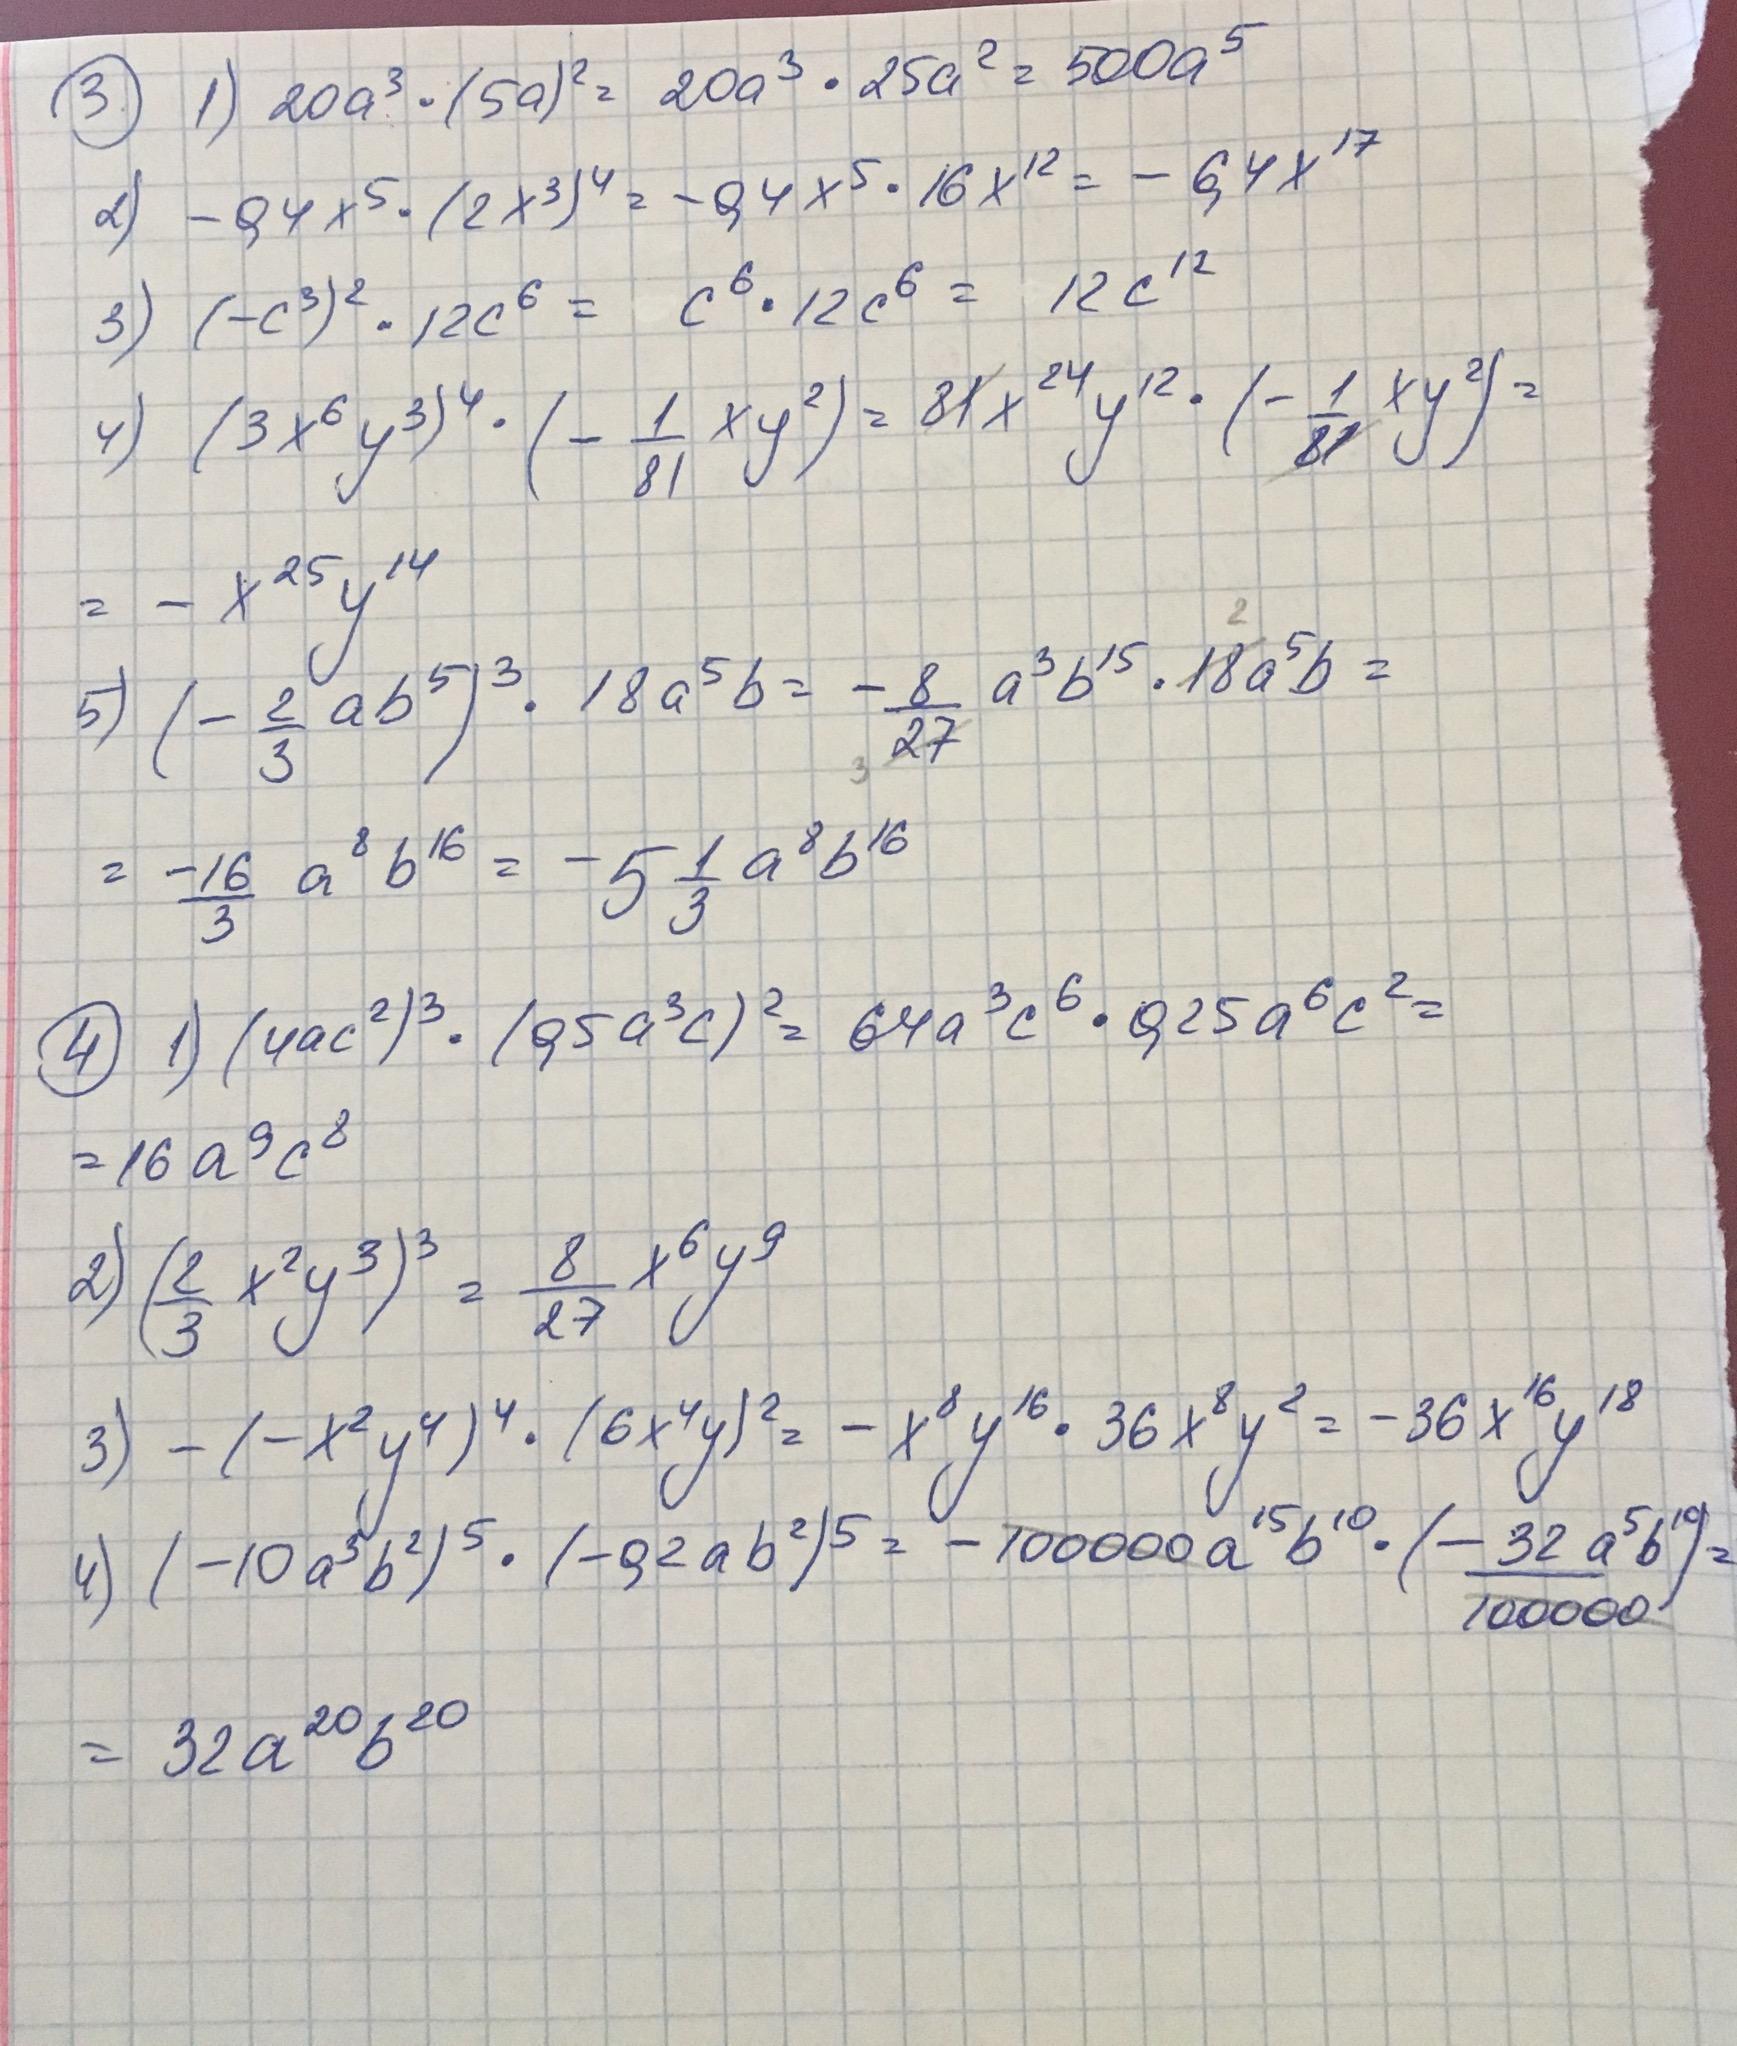 ③ 1) 20a³·(5a)² = 20a³·25a² = 500a⁵
2) -0,4x⁵·(2x³)⁴ = -0,4x⁵·16x¹² = -6,4x¹⁷
3) (-c³)²·12c⁶ = c⁶·12c⁶ = 12c¹²
4) (3x⁶y³)⁴·(-1/81 xy²) = 81x²⁴y¹²·(-1/81 xy²) =
= -x²⁵y¹⁴
5) (-2/3 ab⁵)³·18a⁵b = -8/27 3 a³b¹⁵·18 2 a⁵b =
= -16/3 a⁸b¹⁶ = -5 1/3 a⁸b¹⁶
④ 1) (4ac²)³·(0,5a³c)² = 64a³c⁶·0,25a⁶c² =
= 16a⁹c⁸
2) (2/3 x²y³)³ = 8/27 x⁶y⁹
3) -(-x²y⁴)⁴·(6x⁴y)² = -x⁸y¹⁶·36x⁸y² = -36x¹⁶y¹⁸
4) (-10a³b²)⁵·(-0,2ab²)⁵ = -100000a¹⁵b¹⁰·(-32/100000 a⁵b¹⁰) =
= 32a²⁰b²⁰